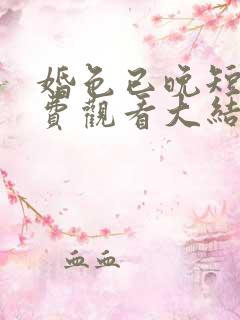 婚色已晚短
費觀看大結
血血